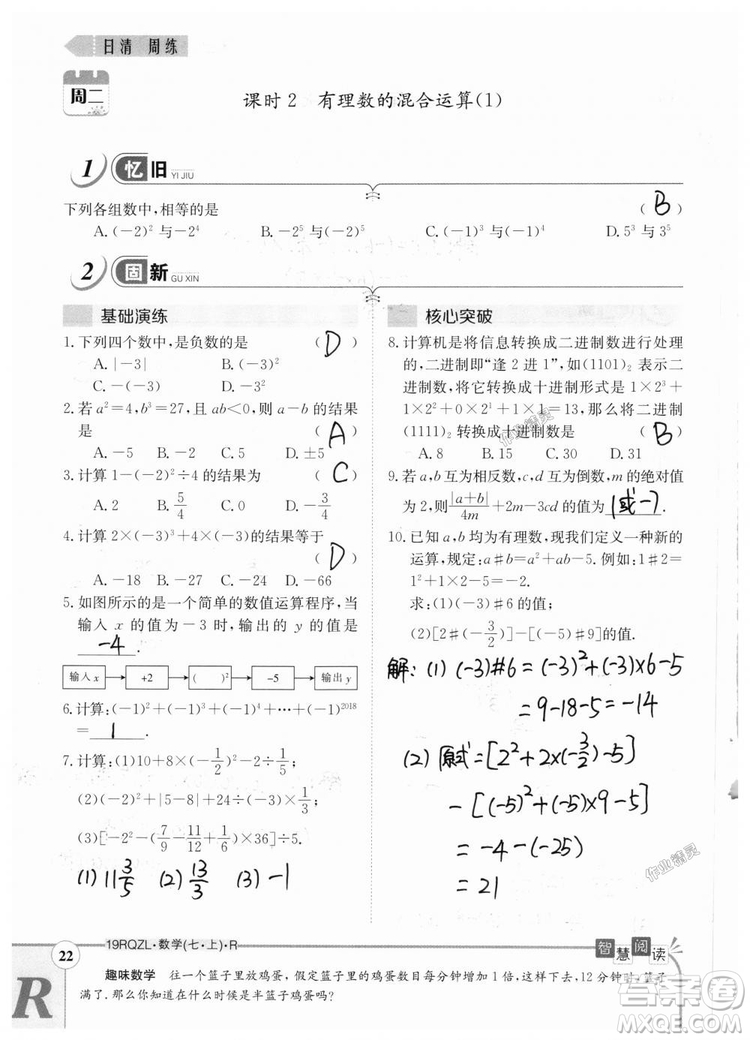 日清 周练
周二
课时2 有理数的混合运算(1)
1 忆旧 YI JIU
下列各组数中,相等的是 ( B )
A. (-2)²与-2⁴ B. -2⁵与(-2)⁵ C. (-1)³与(-1)⁴ D. 5³与3⁵
2 固新 GU XIN
基础演练
1. 下列四个数中,是负数的是 ( D )
A. |-3| B. (-3)²
C. -(-3) D. -3²
2. 若a²=4,b³=27,且ab<0,则a-b的结果
是 ( A )
A. -5 B. -2 C. 5 D. ±5
3. 计算1-(-2)²÷4的结果为 ( C )
A. 2 B. 5/4 C. 0 D. -3/4
4. 计算2×(-3)³+4×(-3)的结果等于
( D )
A. -18 B. -27 C. -24 D. -66
5. 如图所示的是一个简单的数值运算程序,当
输入x的值为-3时,输出的y的值是
-4 .
输入x → +2 → ( )² → -5 → 输出y
6. 计算:(-1)²+(-1)³+(-1)⁴+…+(-1)²⁰¹⁸
= 1 .
7. 计算:(1)10+8×(-1/2)²-2÷1/5;
(2)(-2)²+|5-8|+24÷(-3)×1/3;
(3)[-2²-(7/9-11/12+1/6)×36]÷5.
(1) 11 3/5 (2) 13/3 (3) -1
核心突破
8. 计算机是将信息转换成二进制数进行处理
的,二进制即“逢2进1”,如(1101)₂表示二
进制数,将它转换成十进制形式是1×2³+
1×2²+0×2¹+1×2⁰=13,那么将二进制
(1111)₂转换成十进制数是 ( B )
A. 8 B. 15 C. 30 D. 31
9. 若a,b互为相反数,c,d互为倒数,m的绝对值
为2,则|a+b|/4m+2m-3cd的值为 1或-7 .
10. 已知a,b均为有理数,现我们定义一种新的
运算,规定:a♯b=a²+ab-5,例如:1♯2=
1²+1×2-5=-2.
求:(1)(-3)♯6的值;
(2)[2♯(-3/2)]-[(-5)♯9]的值.
解: (1) (-3)#6=(-3)²+(-3)×6-5
=9-18-5=-14
(2) 原式=[2²+2×(-3/2)-5]
-[(-5)²+(-5)×9-5]
=-4-(-25)
=21
作业精灵
作业精灵
22 19RQZL·数学(七·上)·R 智慧阅读
R
趣味数学 往一个篮子里放鸡蛋,假定篮子里的鸡蛋数目每分钟增加1倍,这样下去,12分钟时,篮子
满了.那么你知道在什么时候是半篮子鸡蛋吗?
答案圈